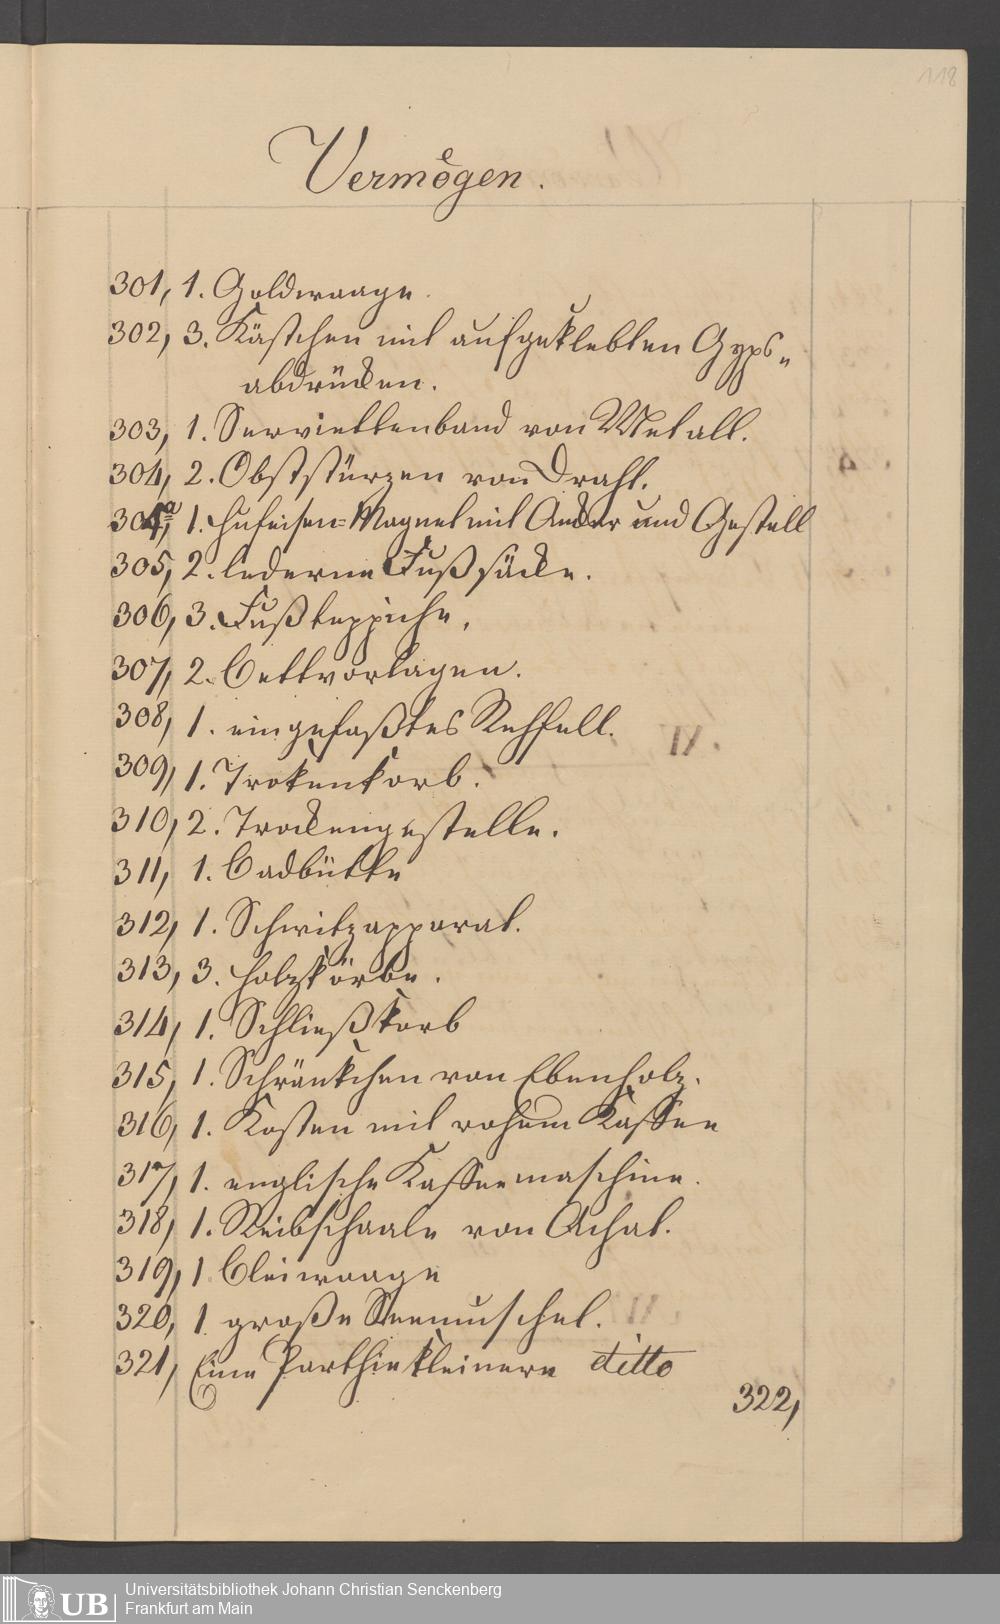 118
Vermögen.
301, 1. Goldwaage.
302, 3. Kästchen mit aufgeklebten Gyps„
abdrücken.
303, 1. Serviettenband von Metall.
304, 2. Obststürzen von Draht.
304a, 1. Hufeisen=Magnet mit Ancker und Gestell
305, 2. lederne Fußsäcke.
306, 3. Fußteppiche.
307, 2. Bettvorlagen.
308, 1. eingefaßtes Rehfell.
309, 1. Trokenkorb.
310, 2. Trockengestelle.
311, 1. Badbütte
312, 1. Schwitzapparat.
313, 3. Holzkörbe.
314, 1. Schließkorb
315, 1. Schränkchen von Ebenholz.
316, 1. Kasten mit rohem Kaffee
317, 1. englische Kaffeemaschine.
318, 1. Reibschaale von Achat.
319, 1 Bleiwaage
320, 1 große Seemuschel.
321, Eine Parthie kleinere ditto
322,
UB
Universitätsbibliothek Johann Christian Senckenberg
Frankfurt am Main